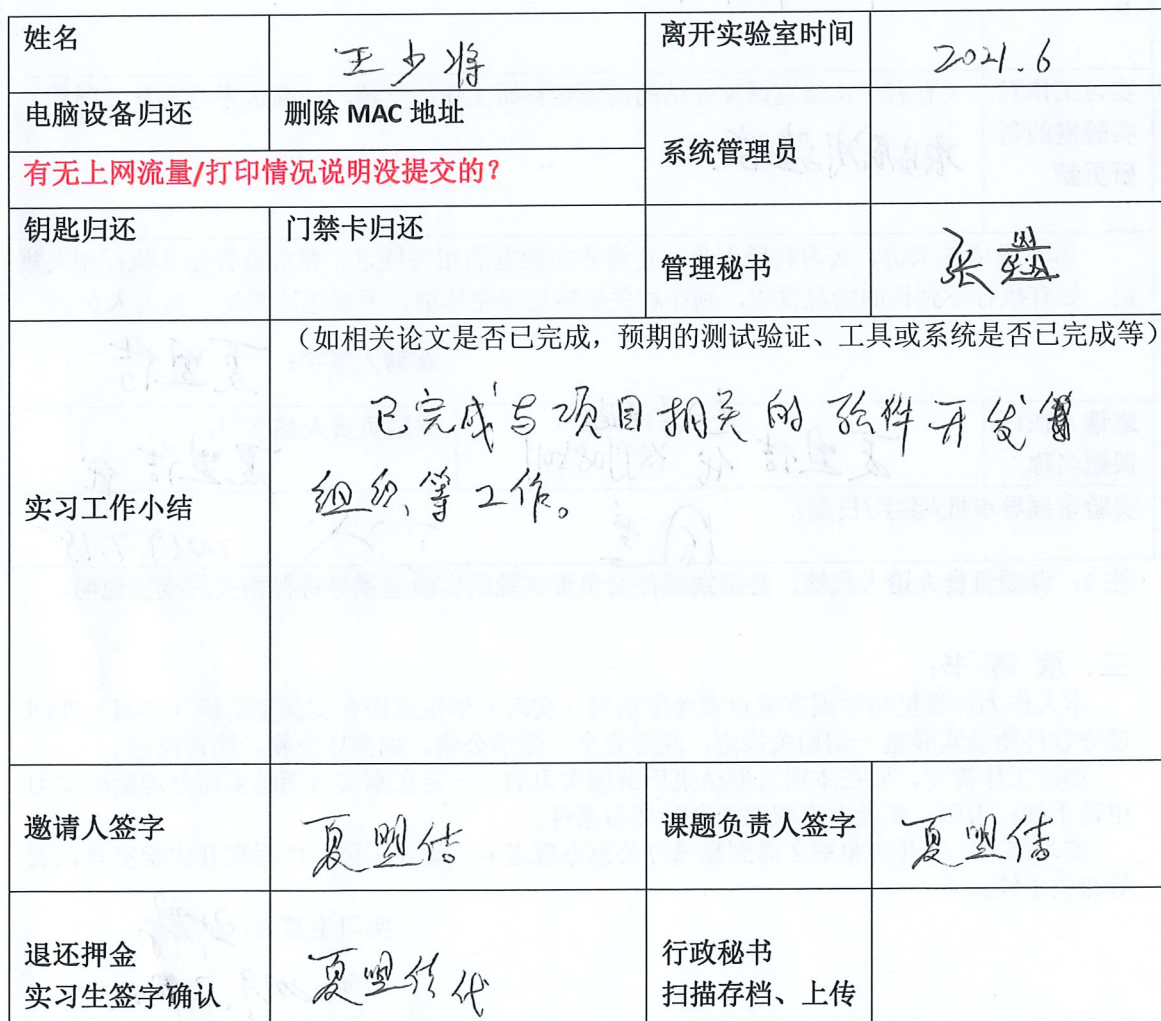 姓名 王少将 离开实验室时间 2021.6
电脑设备归还 删除 MAC 地址
系统管理员
有无上网流量/打印情况说明没提交的?
钥匙归还 门禁卡归还
管理秘书 张
(如相关论文是否已完成,预期的测试验证、工具或系统是否已完成等)
实习工作小结
已完成与项目相关的软件开发
组织等工作。
邀请人签字 夏盟佶 课题负责人签字 夏盟佶
退还押金
实习生签字确认 夏盟佶代
行政秘书
扫描存档、上传